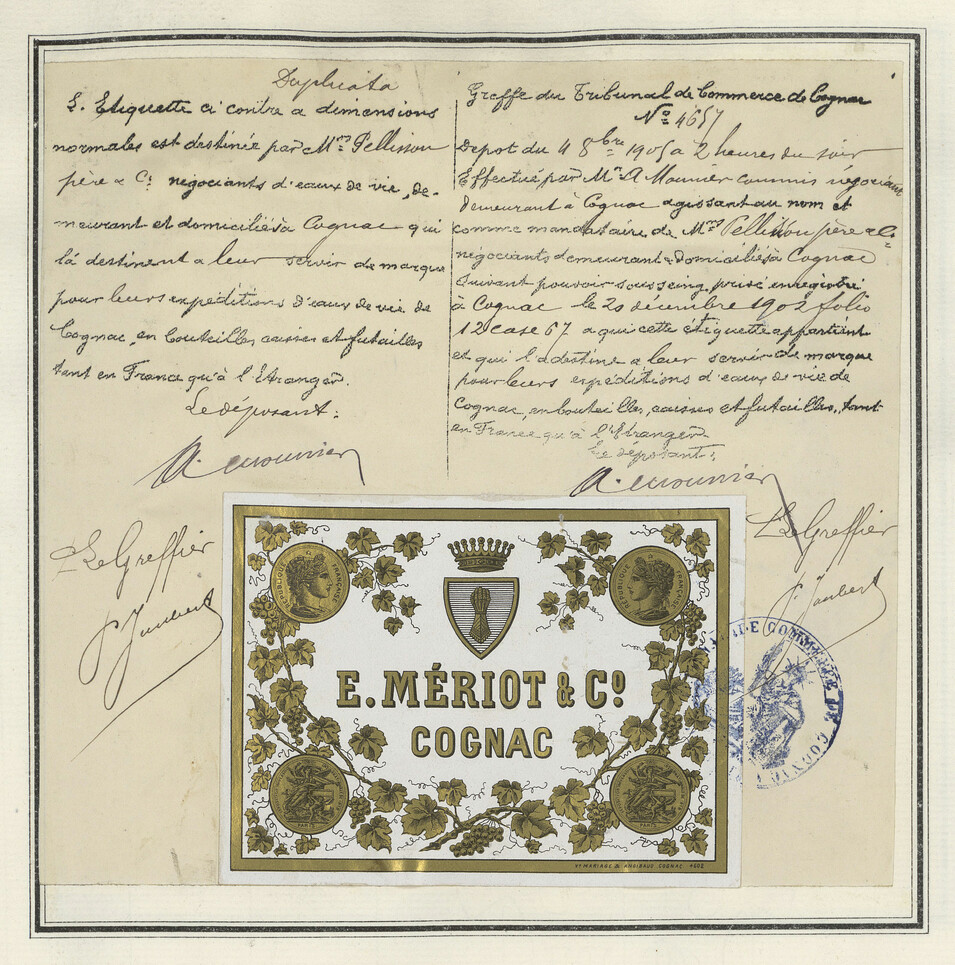 Duplicata
L. Etiquette ci contre a dimensions
normales est destinée par Mrs Pellisson
père & Cº negociants d'eaux de vie, de-
meurant et domiciliés à Cognac qui
la destinent a leur servir de marque
pour leurs expéditions d'eaux de vie de
Cognac, en bouteilles, caisses et futailles
tant en France qu'à l'Etranger.
Le déposant:
A. Mounier
Le Greffier
Greffe du Tribunal de Commerce de Cognac
Nº 4657
Depot du 4 8bre 1905 à 2 heures du soir
Effectué par Mr A Mounier commis négociant
demeurant à Cognac agissant au nom et
comme mandataire de Mrs Pellisson père & Cº
négociants demeurant & domiciliés à Cognac
suivant pouvoir sous seing privé enregistré
à Cognac le 20 décembre 1902 folio
12 case 67 a qui cette étiquette appartient
et qui l'a destine a leur servir de marque
pour leurs expéditions d'eaux de vie de
Cognac, en bouteilles, caisses et futailles, tant
en France qu'à l'Etranger
Le déposant:
A. Mounier
Le Greffier
RÉPUBLIQUE FRANÇAISE
RÉPUBLIQUE FRANÇAISE
E. MÉRIOT & Cº
COGNAC
PARIS
PARIS
Vº MARIAGE & ANGIBAUD COGNAC 4602
DE COMMERCE DE COGNAC